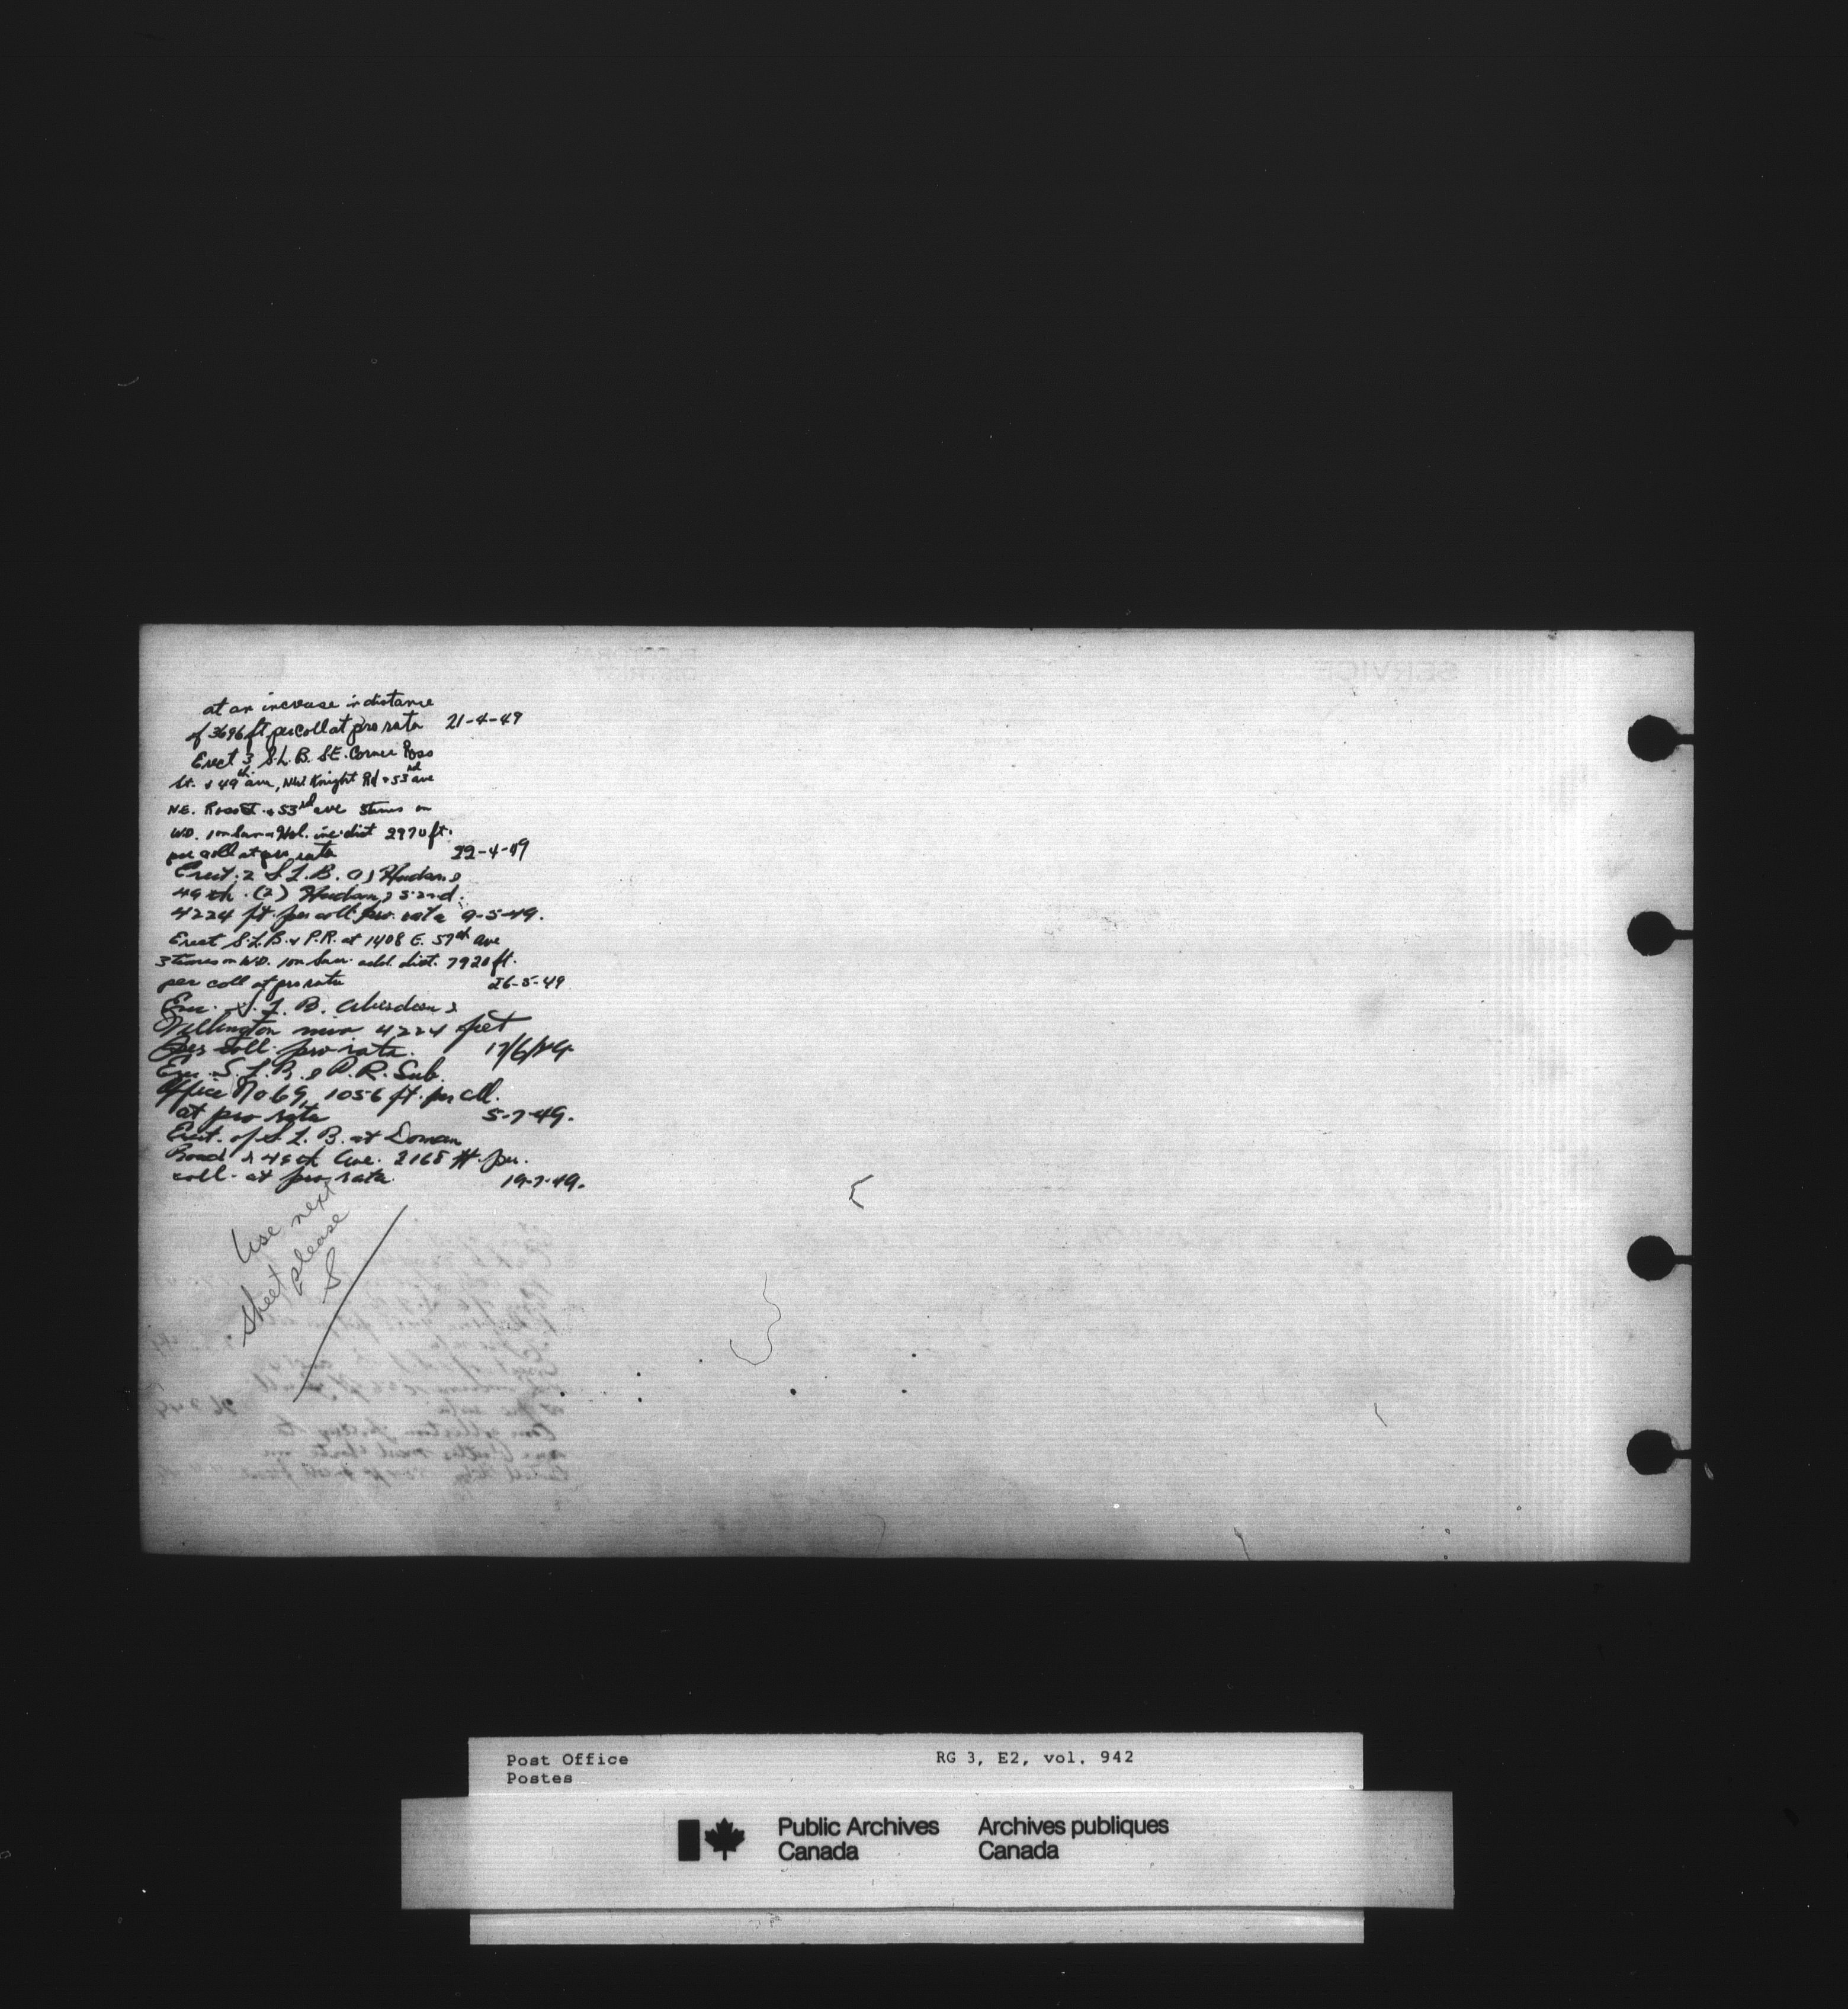 at an increase in distance
of 3696 ft per coll at pro rata 21-4-49
Erect 3 S.L.B. S.E. Corner Ross
St. & 49th ave, N.W. Knight Rd & 53rd ave
N.E. Ross St. & 53rd ave 3 times on
W.D. 1 on Sun & Hol. inc. dist 2970 ft.
per coll at pro rata 22-4-49
Erect. 2 S.L.B. (1) &
49th. (2) & 52nd.
4224 ft. per coll. pro. rata 9-5-49.
Erect S.L.B. & P.R. at 1408 E. 57th ave
3 times on W.D. 1 on Sun. add. dist. 7920 ft.
per coll at pro rata 26-5-49
Erec. S.L.B. Aberdeen &
Wellington 4224 feet
per coll. pro rata. 17/6/49
Erec. S.L.B. & P.R. Sub.
Office No 69, 1056 ft. per coll.
at pro rata 5-7-49.
Erect. of S.L.B. at Doman
Road & 48th Ave. 2168 ft. per.
coll. at pro rata 19-7-49.
Use next
sheet please
S
Post Office RG 3, E2, vol. 942
Postes
Public Archives Archives publiques
Canada Canada